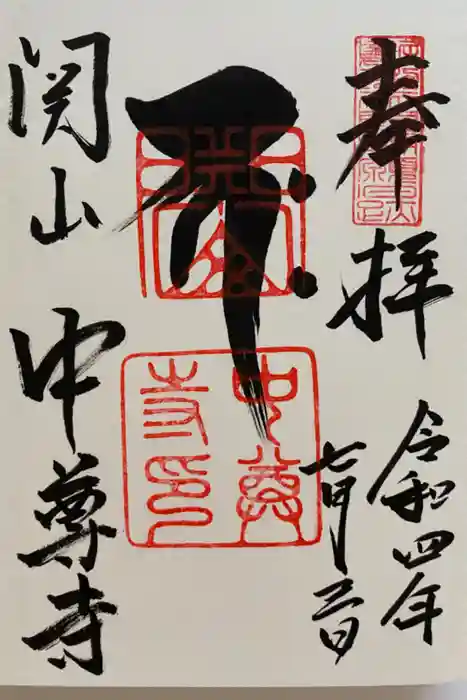 奉拝
令和四年
七月三日
中尊
寺印
関山 中尊寺